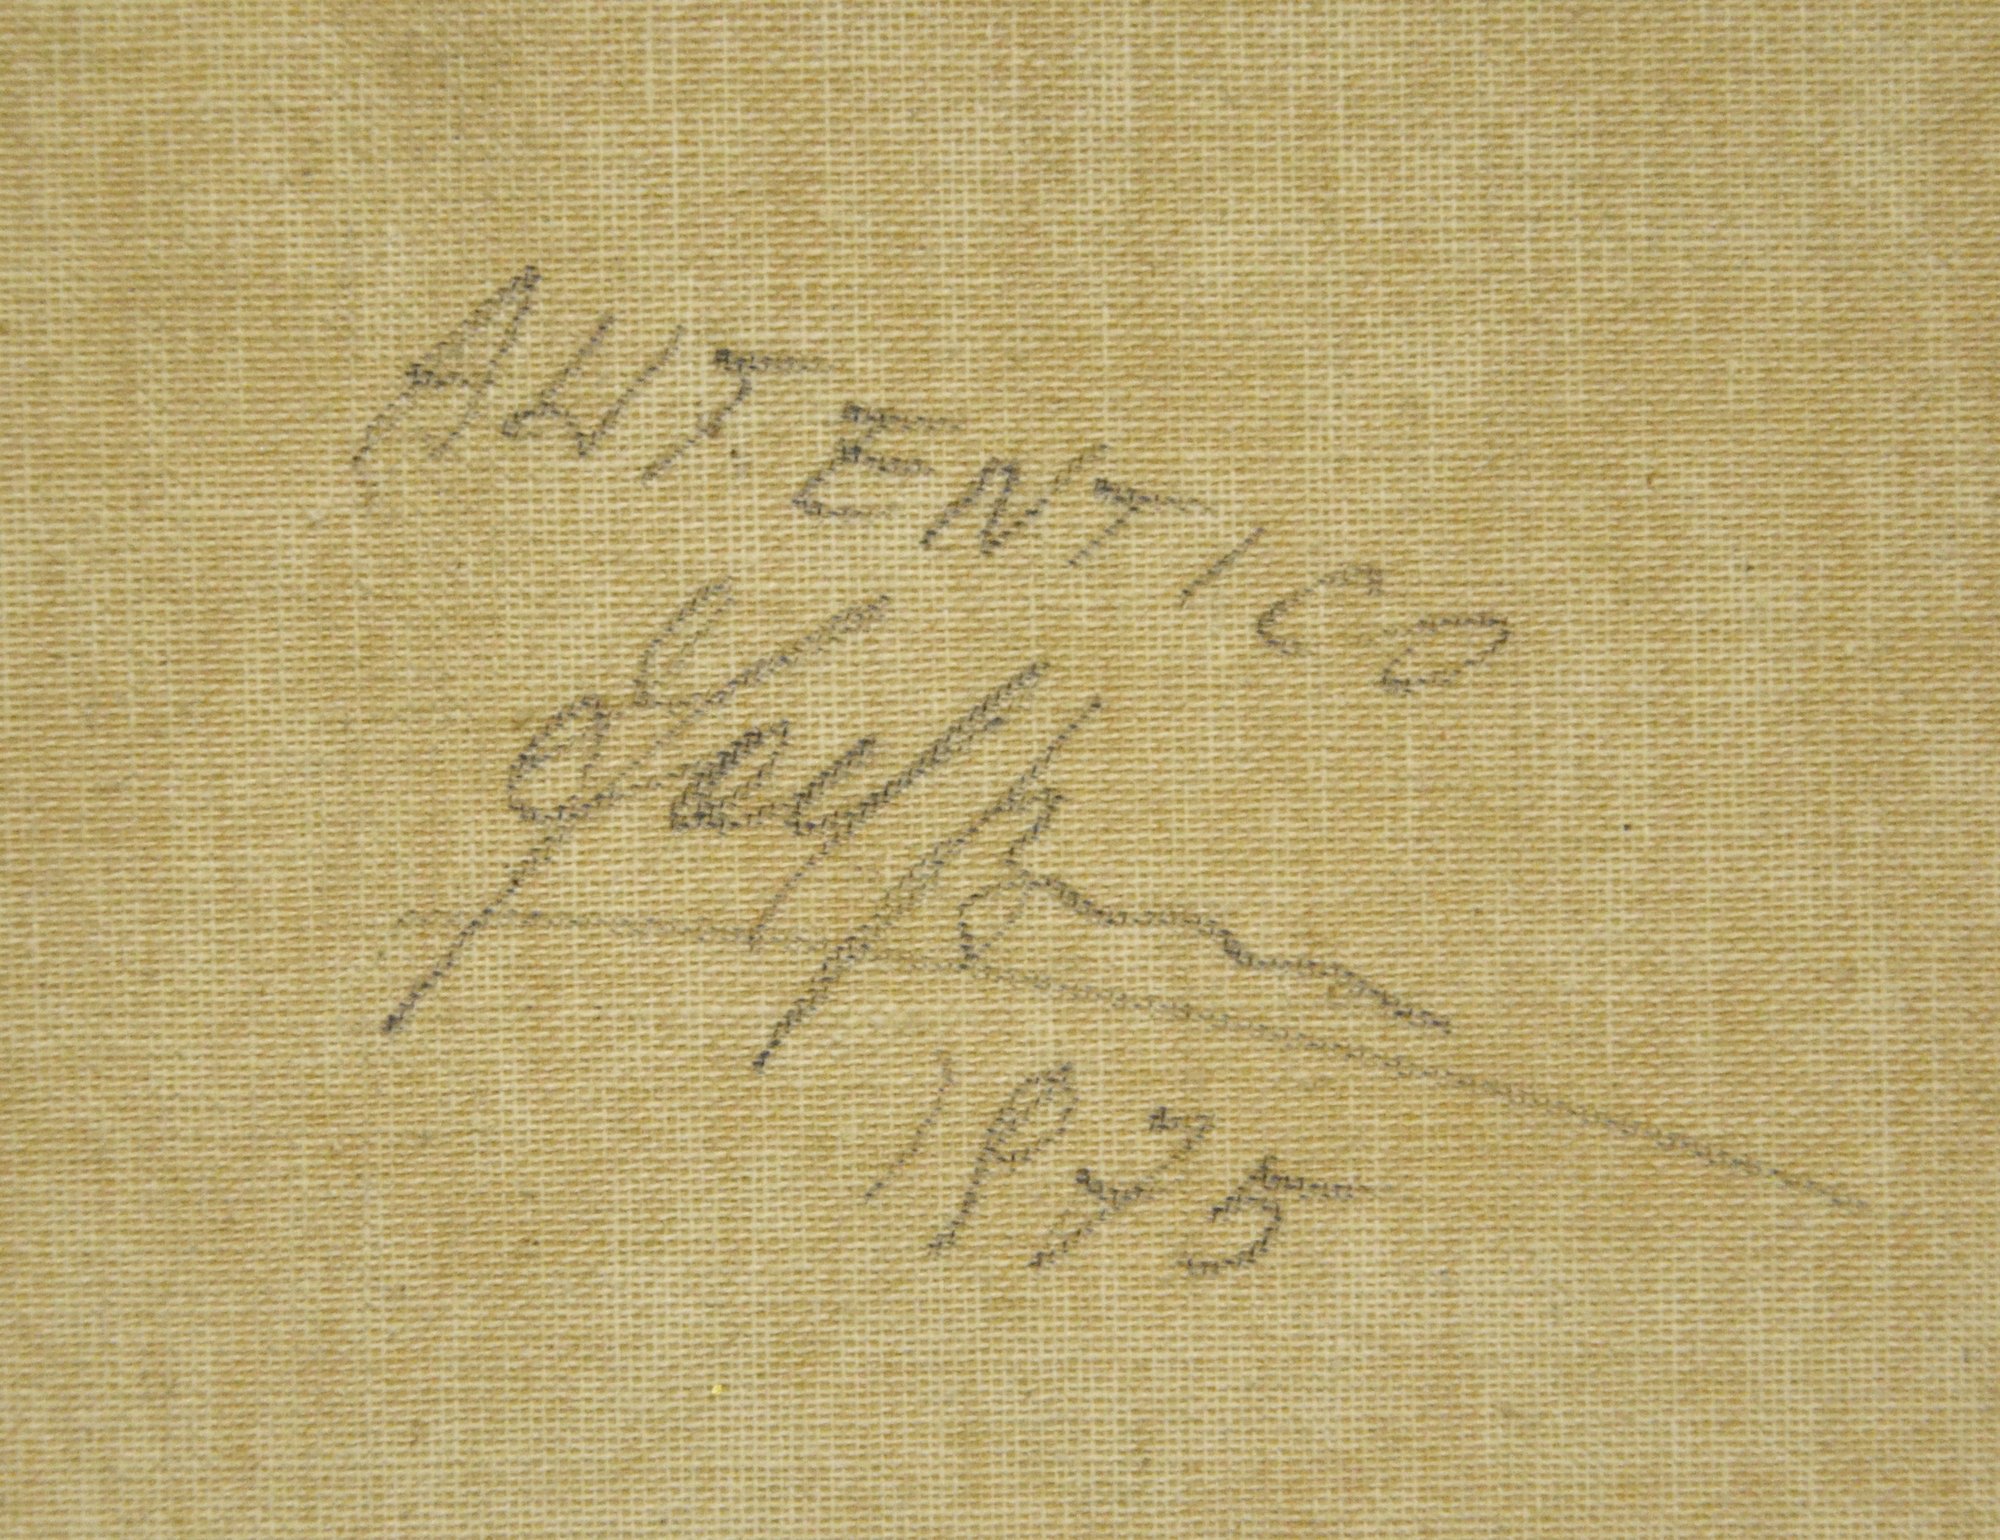 AUTENTICO
1975